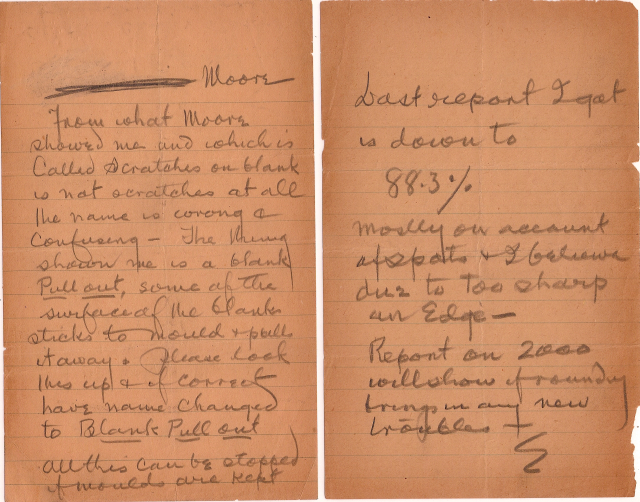 Moore
From what Moore
showed me and which is
Called Scratches on blank
is not scratches at all
the name is wrong &
Confusing - The thing
shown me is a blank
Pull out, some of the
surface of the blank
sticks to mould & pulls
it away. Please look
this up & if correct
have name changed
to Blank Pull out
all this can be stopped
if moulds are kept
Last report I got
is down to
88.3%
mostly on account
of spots & I believe
due to too sharp
an Edge -
Report on 2000
will show if rounding
brings in any new
troubles -
E